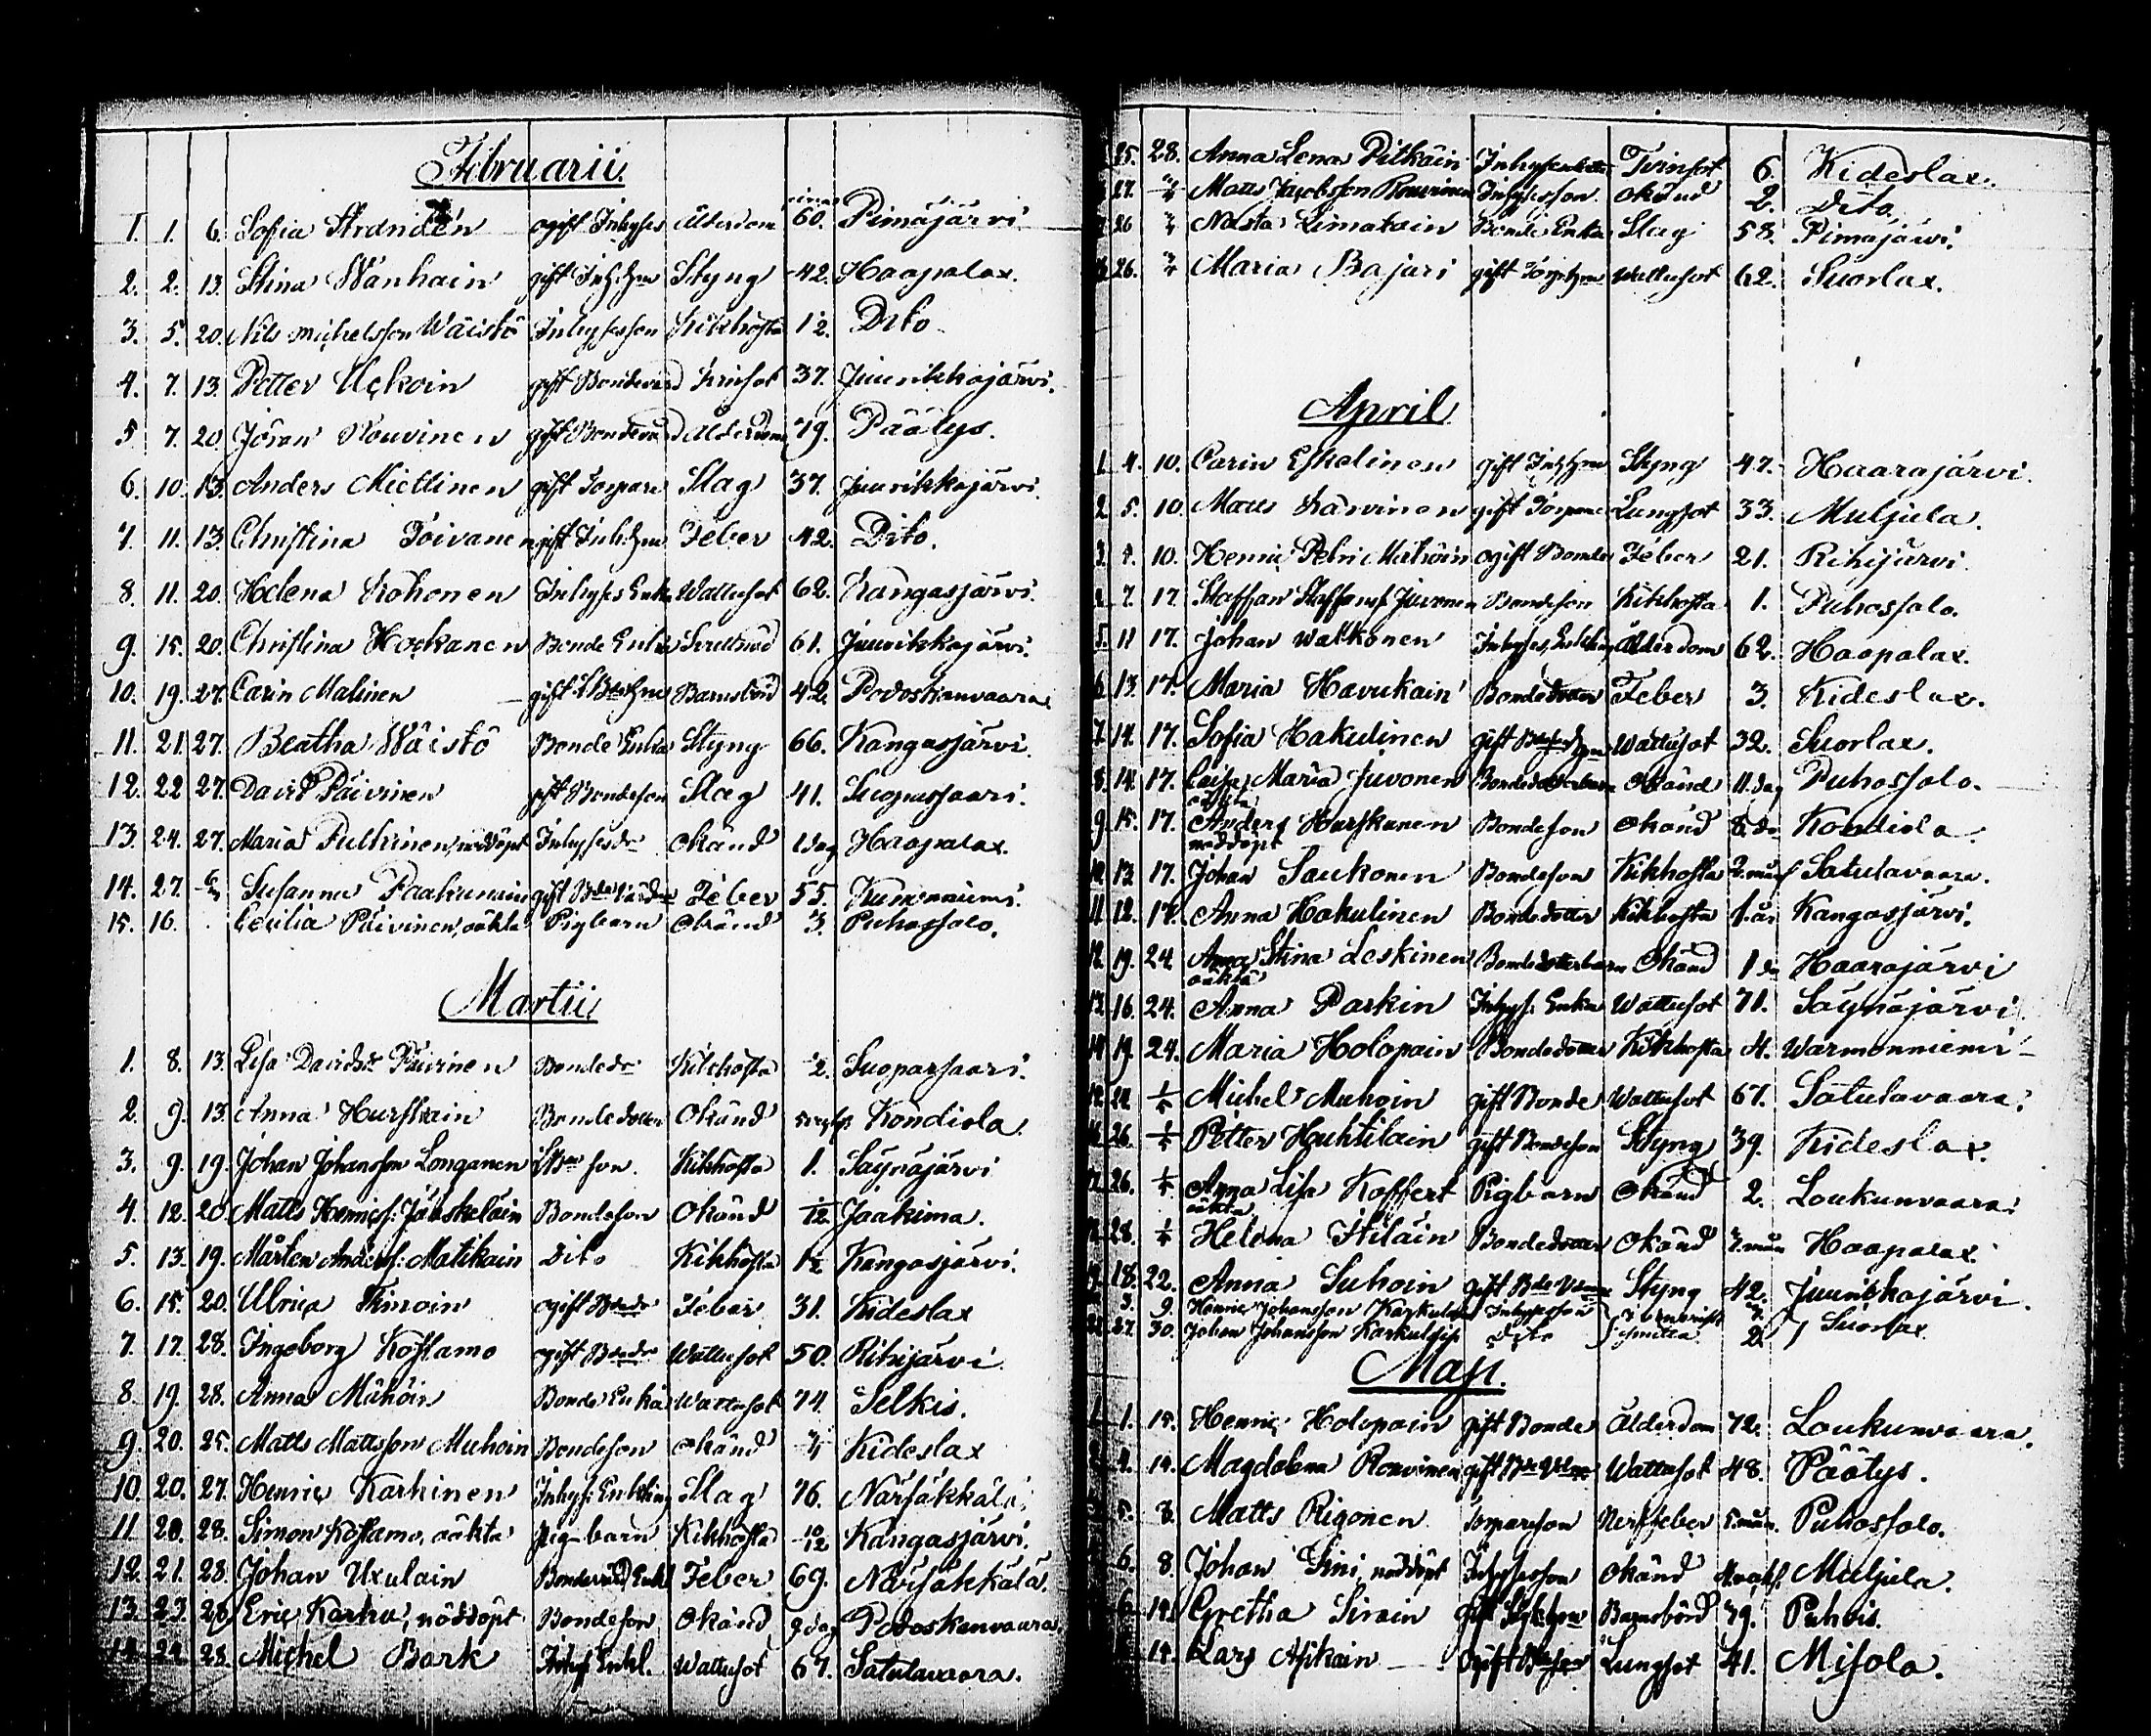 Februarii
1. 1. 6. Sofia ogift Inhyses Ålderdom 60. Pimäjärvi
2. 2. 13. Stina Wänhain gift Inh:hu Styng 42. Haapalax.
3. 5. 20. Nils Michelsson Wäistö Inhysesson Kikhosta 12. Dito
4. 7. 13. Petter Uckoin gift Bondevärd 37. Juurikkajärvi.
5 7. 20 Jöran Rouvinen gift Bondevärd Ålderdom 79. Päätys.
6. 10. 13. Anders Miettinen gift Torpare Slag 37. Juurikkajärvi.
7. 11. 13. Christina Toivanen gift Inh:hu Feber 42. Dito.
8. 11. 20. Helena Kohonen Inhyses Enka Wattusot 62. Kangasjärvi.
9. 15. 20. Christina Hockanen Bonde Enka 61. Juurikkajärvi.
10. 19. 27. Carin Malinen gift Barnsbörd 42 Podoskanvaara
11. 21. 27. Beatha Wäistö Bonde Enka Styng 66. Kangasjärvi.
12. 22 27. David Päivinen gift Bondeson Slag 41. Suoparsaari.
13. 24. 27. Maria Pulkinen, nöddöpt Inhysesdr Okänd 1 dag Haapalax.
14. 27. Susanna Paakunain gift Feber 55. Kumonniemi.
15. 16. Cecilia Päivinen, oäkta Pigbarn Okänd 3. Puhossalo.
Martii
1. 8. 13. Lisa Davidsdr Päivinen Bondedr Kikhosta 2. Suoparsaari.
2. 9. 13. Anna Hurskain Bondedotter Okänd Kondiola.
3. 9. 19. Johan Johansson Longanen son. Kikhosta 1. Säynäjärvi
4. 12. 20 Matts Henrics: Jääskeläin Bondeson Okänd Jaakima.
5. 13. 19. Mårten Anders: Matikain Dito Kikhosta 1½ Kangasjärvi.
6. 15. 20. Ulrica Timoin ogift Bondedr Feber 31. Kideslax
7. 17. 28. Ingeborg Kostamo ogift Bondedr Wattusot 50. Rihijärvi
8. 19. 28. Anna Mähöin Bonde Enka Wattusot 74. Selkis.
9. 20. 25. Matts Mattsson Muhoin Bondeson okänd Kideslax
10. 20. 27. Henric Karhinen Inhyses Enkling Slag 76. Närsäkkälä.
11 20. 28. Simon Kostamo, oäkta Pigbarn Kikhosta 10/12 Kangasjärvi.
12. 21. 28. Johan Uxulain Bondevärd Enkl Feber 69. Närsäkkälä.
13. 23. 28 Eric Karhu, nöddöpt Bondeson Okänd 9 dag Podoskanvaara
14. 24. 28. Michel Bark Inhys Enkl. Wattusot 67. Satulavaara.
15. 28. Anna Lena Pitkäin Tvinsot 6. Kideslax.
27. Matts Jacobsson Rouvinen Inhysesson. okänd 2. Dito.
26 Nasta Limatain Bonde Enka Slag 58. Pimäjärvi.
26. Maria Bajari gift Wattusot 62. Suorlax.
April
1. 4. 10. Carin Eskelinen gift Inh:hu Styng 47. Haarajärvi.
2. 5. 10. Matts Karvinen gift Torpare Lungsot 33. Muljula.
3. 4. 10. Henric Petri ogift Bonde Feber 21. Rihijärvi
7. 17 Staffan Staffans Juvonen Bondeson Kikhosta 1. Puhossalo.
5. 11 17. Johan Watkonen Inhyses Enkling Ålderdom 62. Haapalax.
6. 13. 17. Maria Havukain Bondedotter Feber 3. Kideslax.
7. 14. 17. Sofia Hakulinen gift Wattusot 32. Suorlax.
8. 14. 17. Caisa Maria Juvonen Bondedotterbarn Okänd 11. dag Puhossalo.
oäkta
9. 15. 17. Anders Hurskanen Bondeson okänd 8. da Kondiola.
nöddöpt
10. 12 17. Johan Saukonen Bondeson Kikhosta Satulavaara.
11 12. 17. Anna Hakulinen Bondedotter Kikhosta 1. år Kangasjärvi.
12. 19. 24 Anna Stina Leskinen Bondedotterbarn Okänd 1 da Haarajärvi
oäkta
13 16. 24. Anna Parkin Inhyses Enka Wattusot 71. Säynäjärvi.
14 19. 24. Maria Holopain Bondedotter Kikhosta 4. Warmonniemi
Michel Muhoin gift Bonde Wattusot 67. Satulavaara.
26. Petter Huhtilain gift Bondeson Styng 39. Kideslax.
26. Anna Lisa Koffert Pigbarn Okänd 2. Loukunvaara.
oäkta
28. Helena Itiläin Bondedotter Okänd 7. mån Haapalax.
18. 22. Anna Suhoin gift Styng 42. Juurikkajärvi.
9. Henric Johansson Inhysesson
27. 30. Johan Johansson Dito 2. Suorlax
Maji.
1. 15. Henric Holopain gift Bonde Ålderdom 72. Loukunvaara.
4. 14. Magdalena Rouvinen gift Wattusot 48. Päätys.
5. 8. Matts Rigonen Torpareson 5. mån. Puhossalo.
6. 8. Johan Sini, nöddöpt Inhysesson okänd Muljula.
14. Gretha Sirain gift Barnsbörd 39. Puhois.
14. Lars Asikain Lungsot 41. Misola.